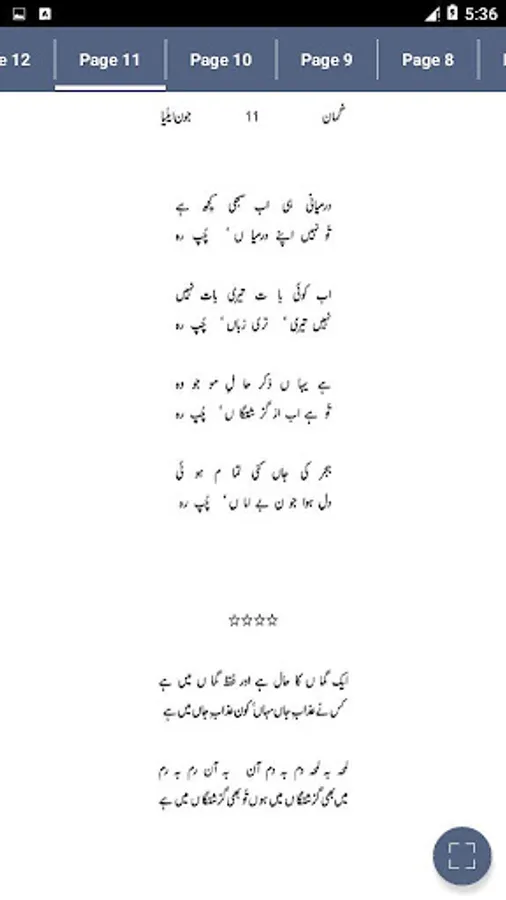 5:36
e 12 Page 11 Page 10 Page 9 Page 8
گمان 11 جون ایلیا
درمیانی ہی اب سبھی کچھ ہے
تُو نہیں اپنے درمیاں، چُپ رہ
اب کوئی بات تیری بات نہیں
نہیں تیری، تری زباں، چُپ رہ
ہے یہاں ذکر حالِ موجودہ
تُو ہے اب از گزشتگاں، چُپ رہ
ہجر کی جاں کنی تمام ہوئی
دل ہوا جون بے اماں، چُپ رہ
☆☆☆☆
ایک گماں کا حال ہے اور فقط گماں میں ہے
کس نے عذابِ جاں سہا، کون عذابِ جاں میں ہے
لمحہ بہ لمحہ دم بہ دم آن بہ آن رم بہ رم
میں بھی گزشتگاں میں ہوں تُو بھی گزشتگاں میں ہے